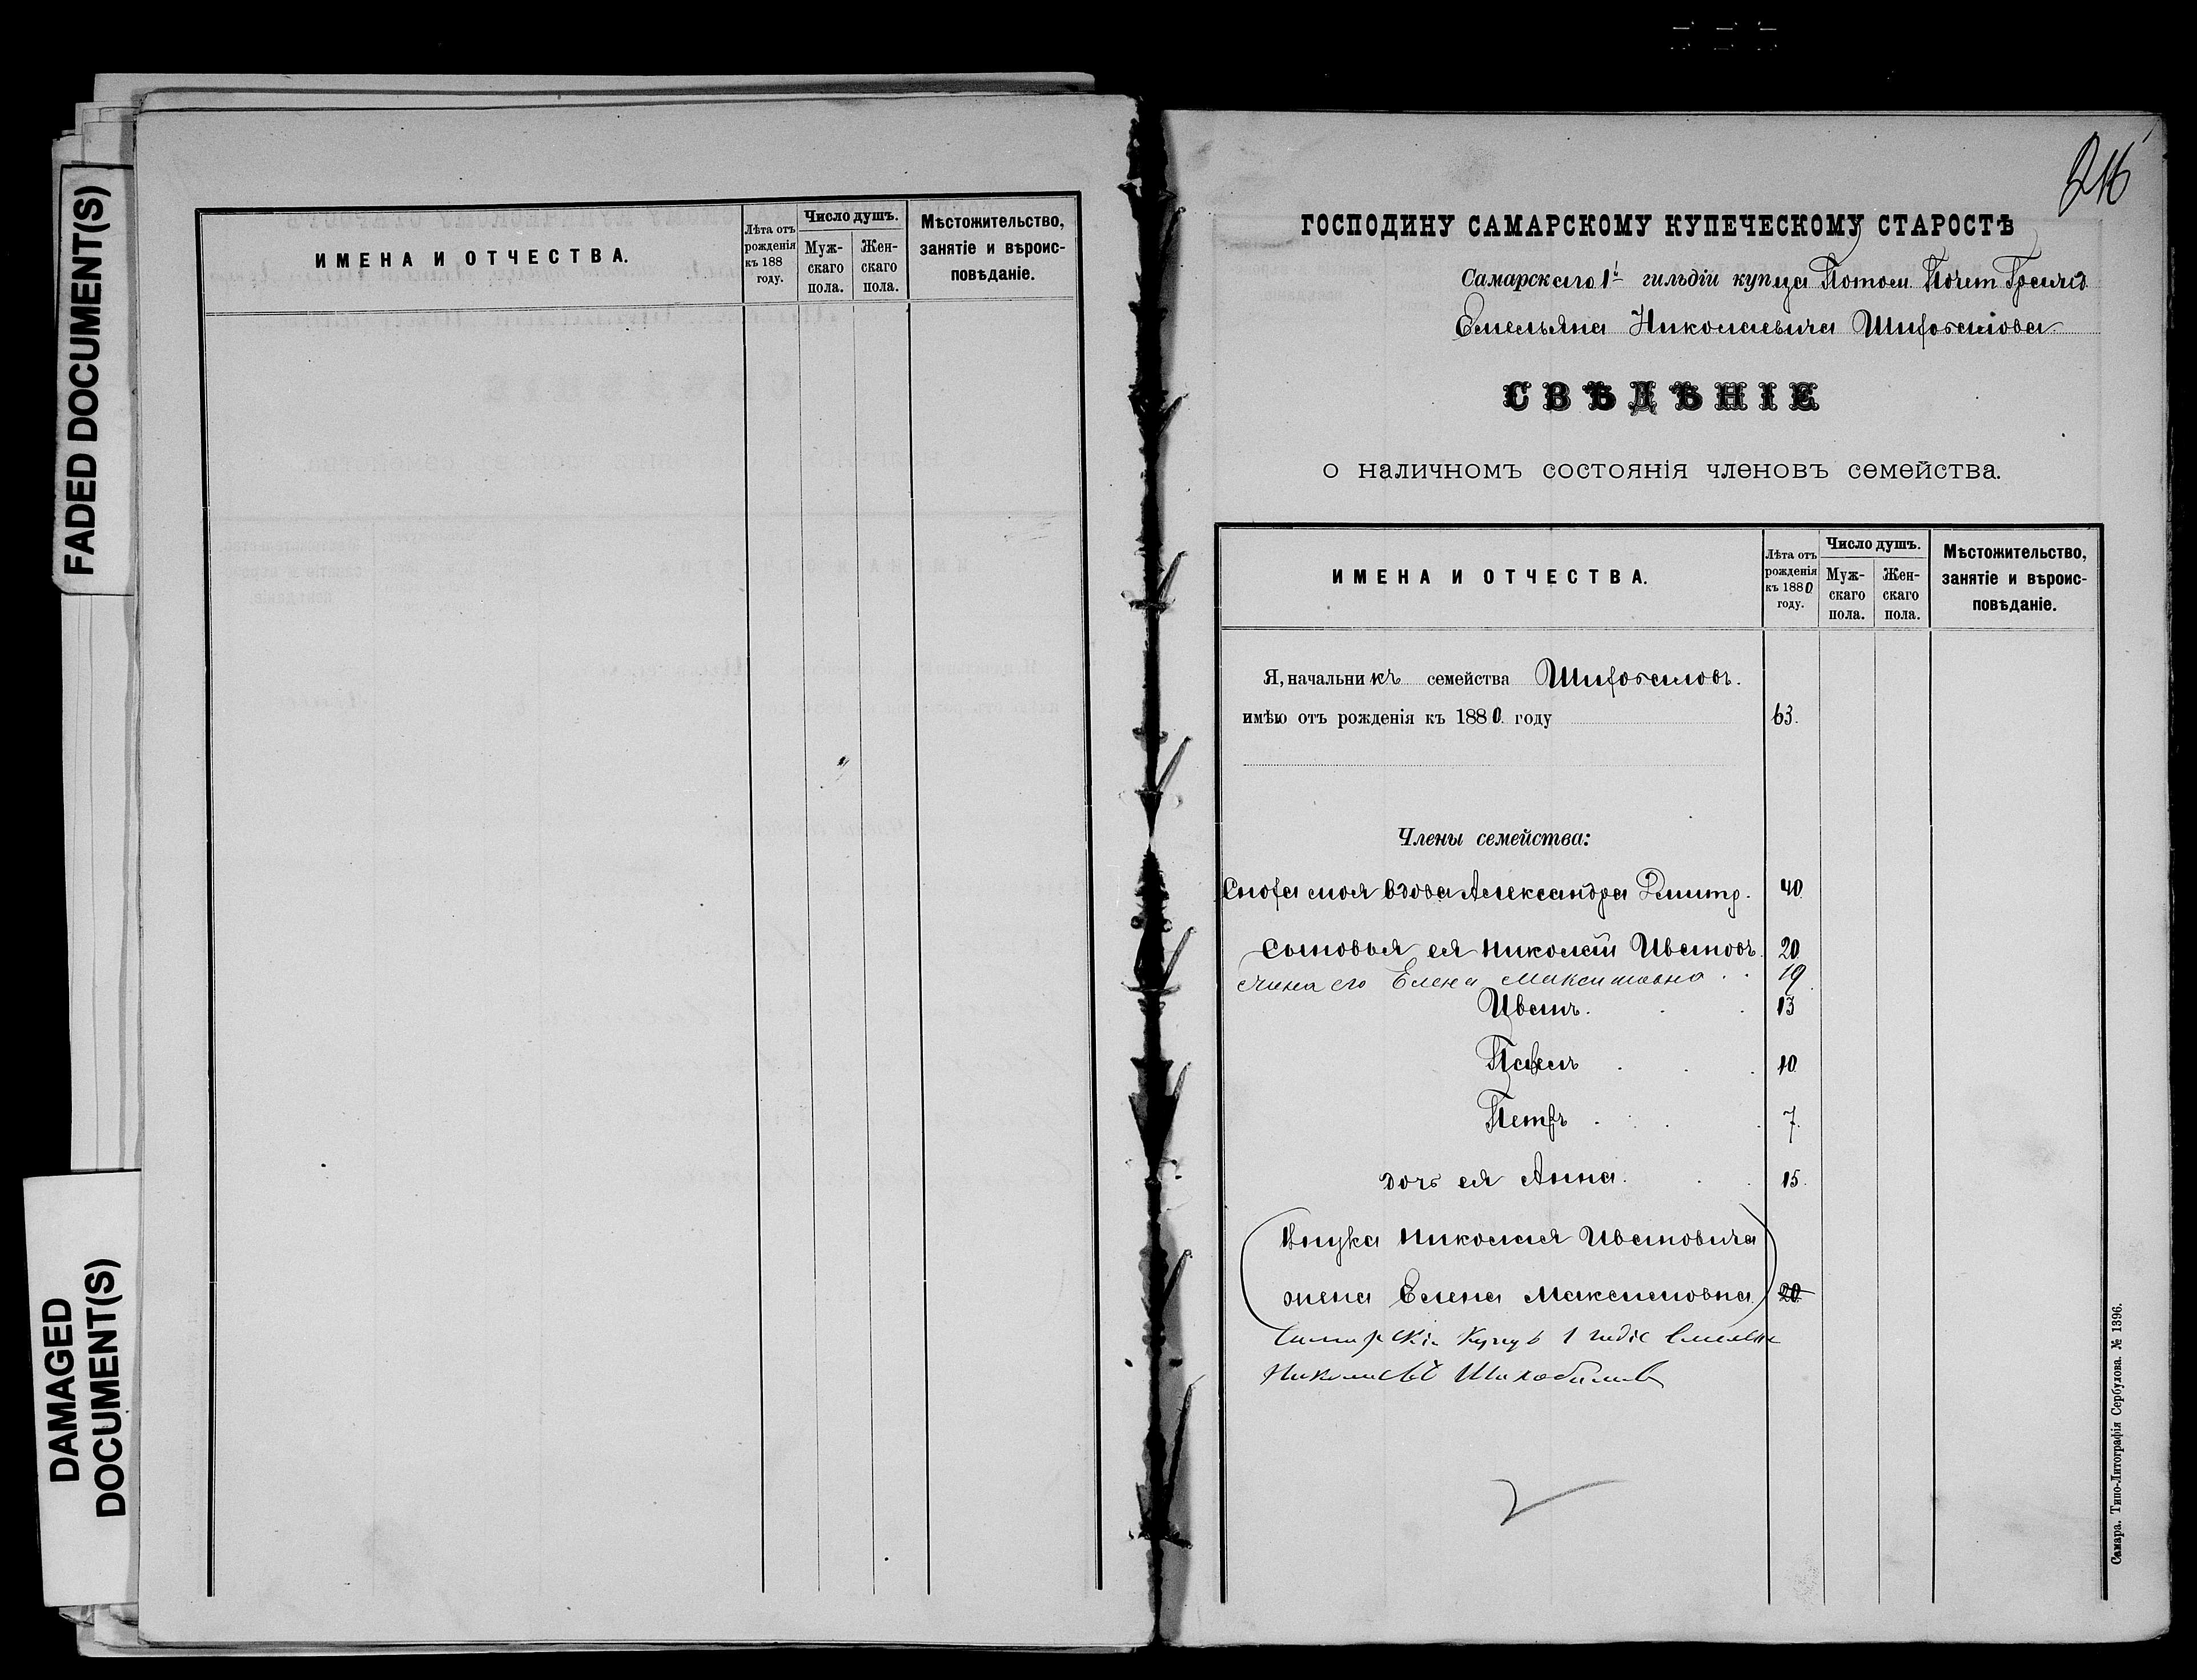 FADED DOCUMENT(S)
DAMAGED
DOCUMENT(S)
ИМЕНА И ОТЧЕСТВА.
Лѣта отъ
рожденія
къ 188
году.
Число душъ.
Муж-
скаго
пола.
Жен-
скаго
пола.
Мѣстожительство,
занятіе и вѣроис-
повѣданіе.
216
ГОСПОДИНУ САМАРСКОМУ КУПЕЧЕСКОМУ СТАРОСТѢ
Самарскаго 1й гильдіи купца Потом. Почет. Гражд.
Емельяна Николаевича Шихобалова
СВѢДѢНІЕ
о наличномъ состоянія членовъ семейства.
ИМЕНА И ОТЧЕСТВА.
Лѣта отъ
рожденія
къ 1880
году.
Число душъ.
Муж-
скаго
пола.
Жен-
скаго
пола.
Мѣстожительство,
занятіе и вѣроис-
повѣданіе.
Я, начальникъ семейства Шихобаловъ.
имѣю отъ рожденія къ 1880 году 63.
Члены семейства:
Сноха моя вдова Александра Дмитр. 40
Сыновья ея Николай Ивановъ 20
жена его Елена Максимовна 19
Иванъ. 13
Павелъ 10
Петръ 7.
дочь ея Анна. 15.
Внука Николая Ивановича
жена Елена Максимовна 20
Самарскій Купец 1 гилдіи Емельян
Николаевъ Шихобалов
Самара. Типо-Литографія Сербулова. № 1396.